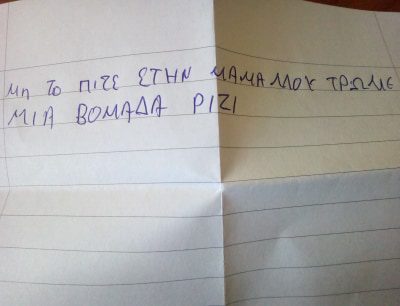 Μη ΤΟ ΠΙΖΕ ΣΤΗΝ ΜΑΜΑ ΜΟΥ ΤΡΩΜΕ
ΜΙΑ ΒΟΜΑΔΑ ΡΙΖΙ